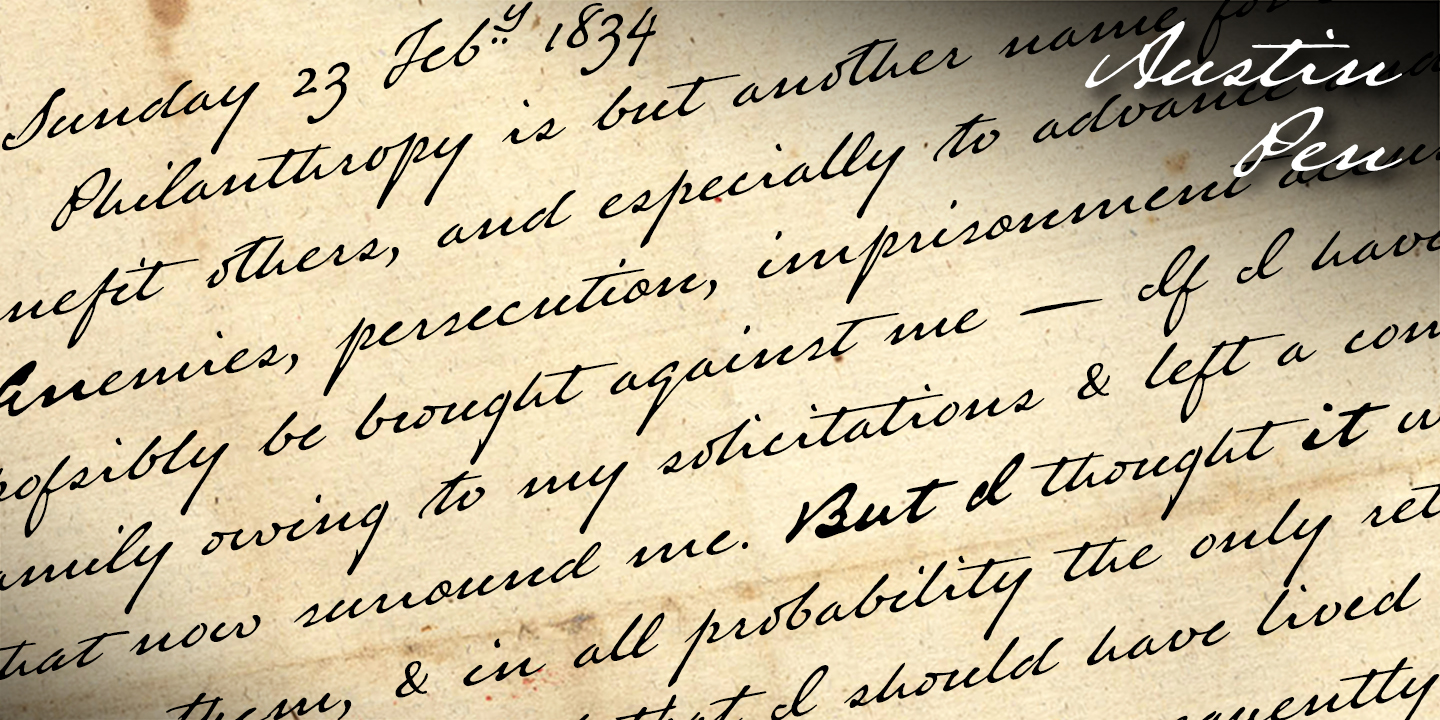 Sunday 23 Feb.y 1834
Philanthropy is but another name for
nefit others, and especially to advance
Enemies, persecution, imprisonment
possibly be brought against me — If I have
amily owing to my solicitations & left a con
that now surround me. But I thought it w
them, & in all probability the only ret
that I should have lived
quently
Austin
Pen